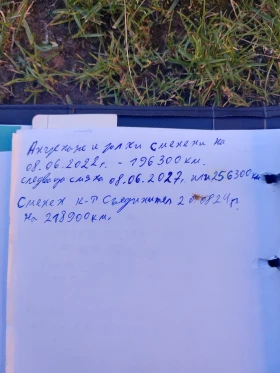 Ангренаж и ролки сменени на
08.06.2022г. - 196300км.
следваща смяна 08.06.2027г. или 256300км
Сменен к-т Съединител 20.0824г.
на 218900км.